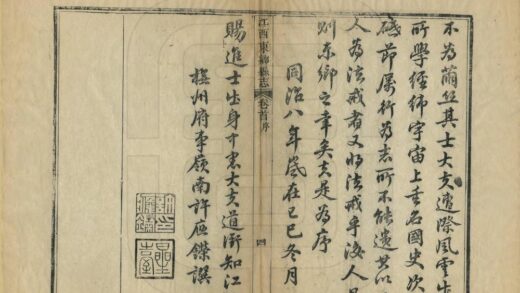 不為繭絲其士大夫遭際風雲生
所學經緯宇宙上垂名國史次
砥節厲行為志所不能遺其以
人為法戒者又將法戒乎後人是
則東鄉之幸矣夫是為序
同治八年歲在己巳冬月
賜進士出身中憲大夫道銜知江
撫州府事嶺南許應鑅譔
江西東鄉縣志
卷首序
四